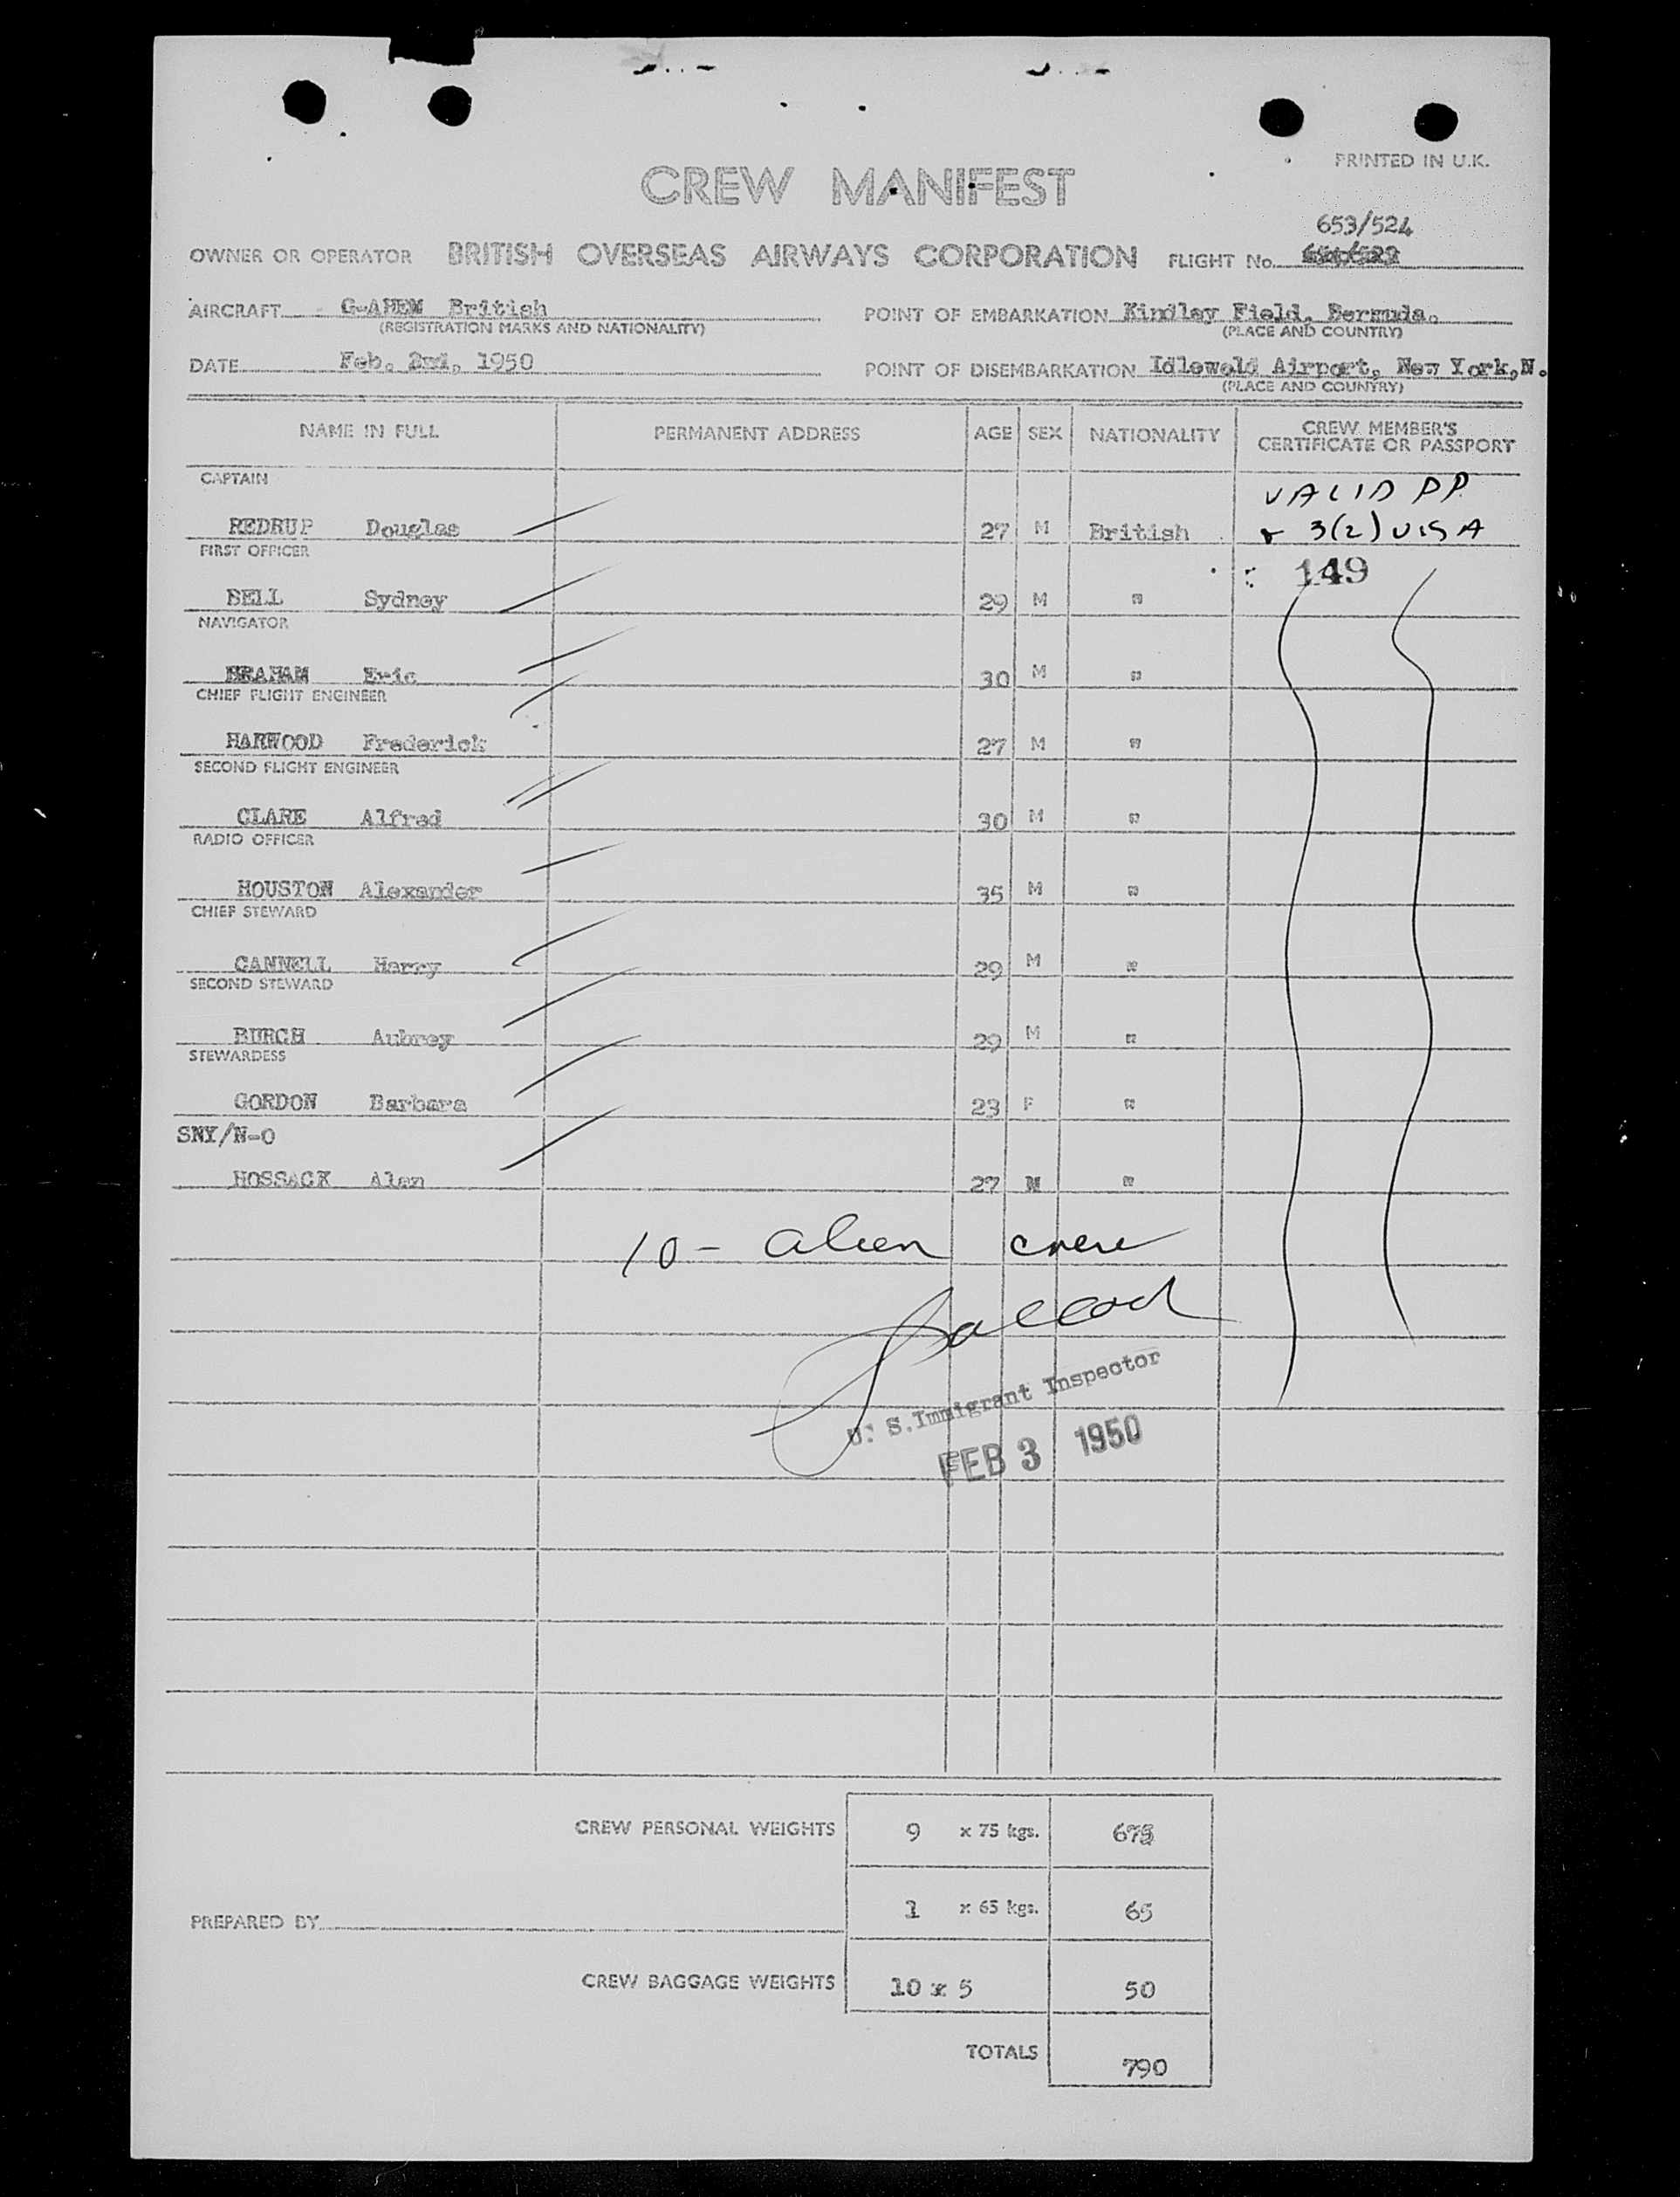 PRINTED IN U.K.
CREW MANIFEST
653/524
OWNER OR OPERATOR BRITISH OVERSEAS AIRWAYS CORPORATION FLIGHT No.
AIRCRAFT G-AHEM British POINT OF EMBARKATION Kindley Field, Bermuda.
(REGISTRATION MARKS AND NATIONALITY) (PLACE AND COUNTRY)
DATE Feb. 2nd, 1950 POINT OF DISEMBARKATION Idleweld Airport, New York, N.
(PLACE AND COUNTRY)
NAME IN FULL PERMANENT ADDRESS AGE SEX NATIONALITY CREW MEMBER'S CERTIFICATE OR PASSPORT
CAPTAIN VALID PP
REDRUP Douglas 27 M British 3(2) VISA
FIRST OFFICER 149
BELL Sydney 29 M "
NAVIGATOR
BRAHAM Eric 30 M "
CHIEF FLIGHT ENGINEER
HARWOOD Frederick 27 M "
SECOND FLIGHT ENGINEER
CLARE Alfred 30 M "
RADIO OFFICER
HOUSTON Alexander 35 M "
CHIEF STEWARD
CANNELL Harry 29 M "
SECOND STEWARD
BURCH Aubrey 29 M "
STEWARDESS
GORDON Barbara 23 F "
SNY/N-O
HOSSACK Alan 27 M "
10 - alien crew
U. S. Immigrant Inspector
FEB 3 1950
CREW PERSONAL WEIGHTS 9 x 75 kgs. 675
PREPARED BY 1 x 65 kgs. 65
CREW BAGGAGE WEIGHTS 10 x 5 50
TOTALS 790